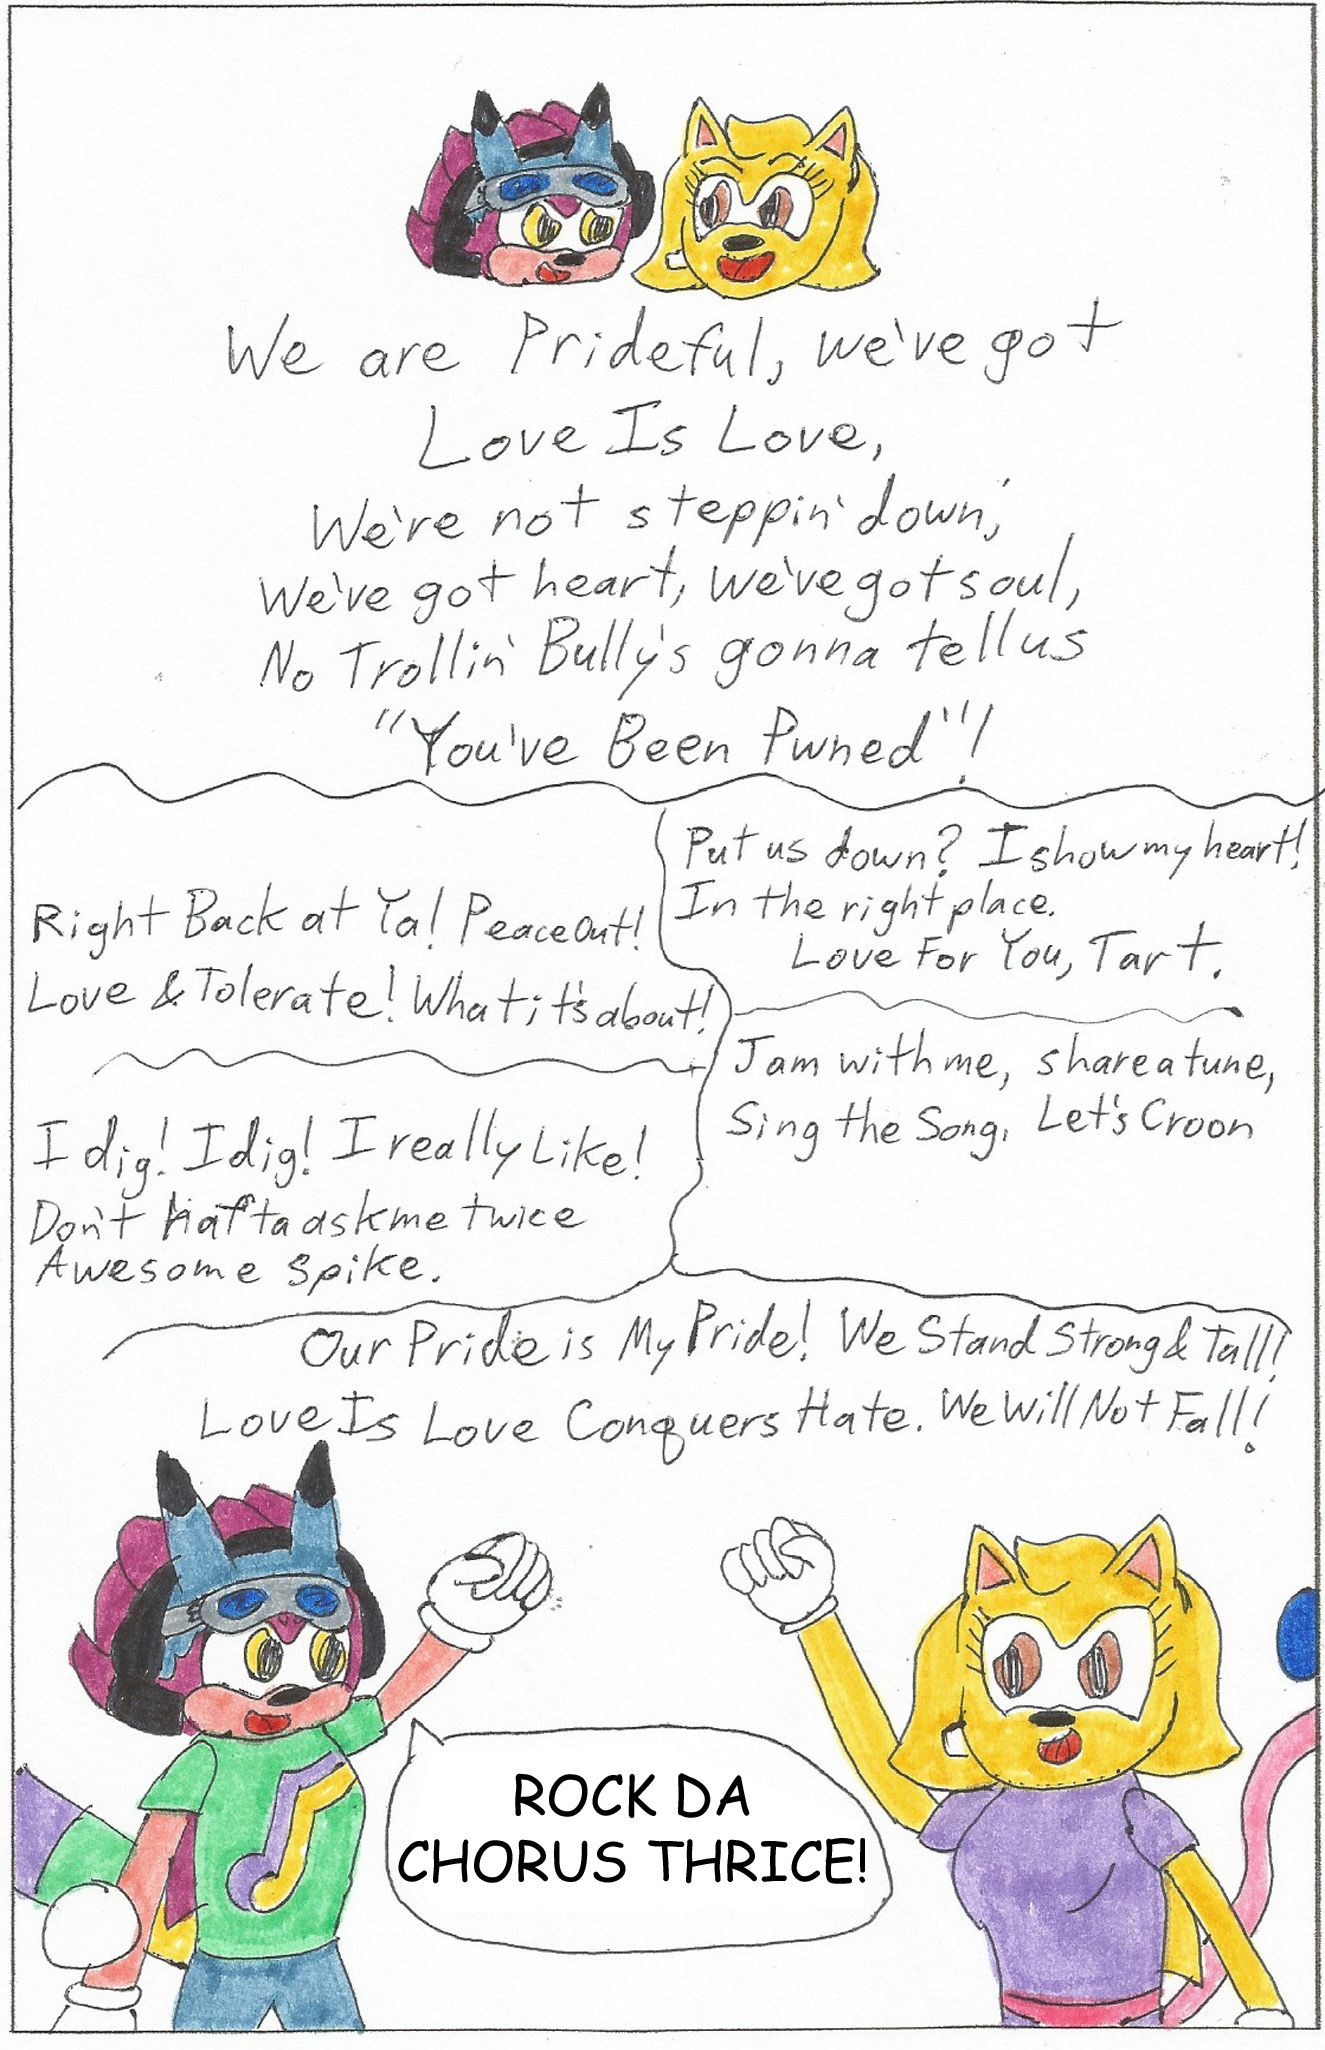 We are Prideful, we've got
Love Is Love,
We're not steppin' down,
We've got heart, we've got soul,
No Trollin' Bully's gonna tell us
"You've Been Pwned"!
Right Back at Ya! Peace Out!
Love & Tolerate! What it's about!
Put us down? I show my heart!
In the right place.
Love For You, Tart.
I dig! I dig! I really Like!
Don't Hafta ask me twice
Awesome Spike.
Jam with me, share a tune,
Sing the Song, Let's Croon
Our Pride is My Pride! We Stand Strong & Tall!
Love Is Love Conquers Hate. We Will Not Fall!
ROCK DA
CHORUS THRICE!